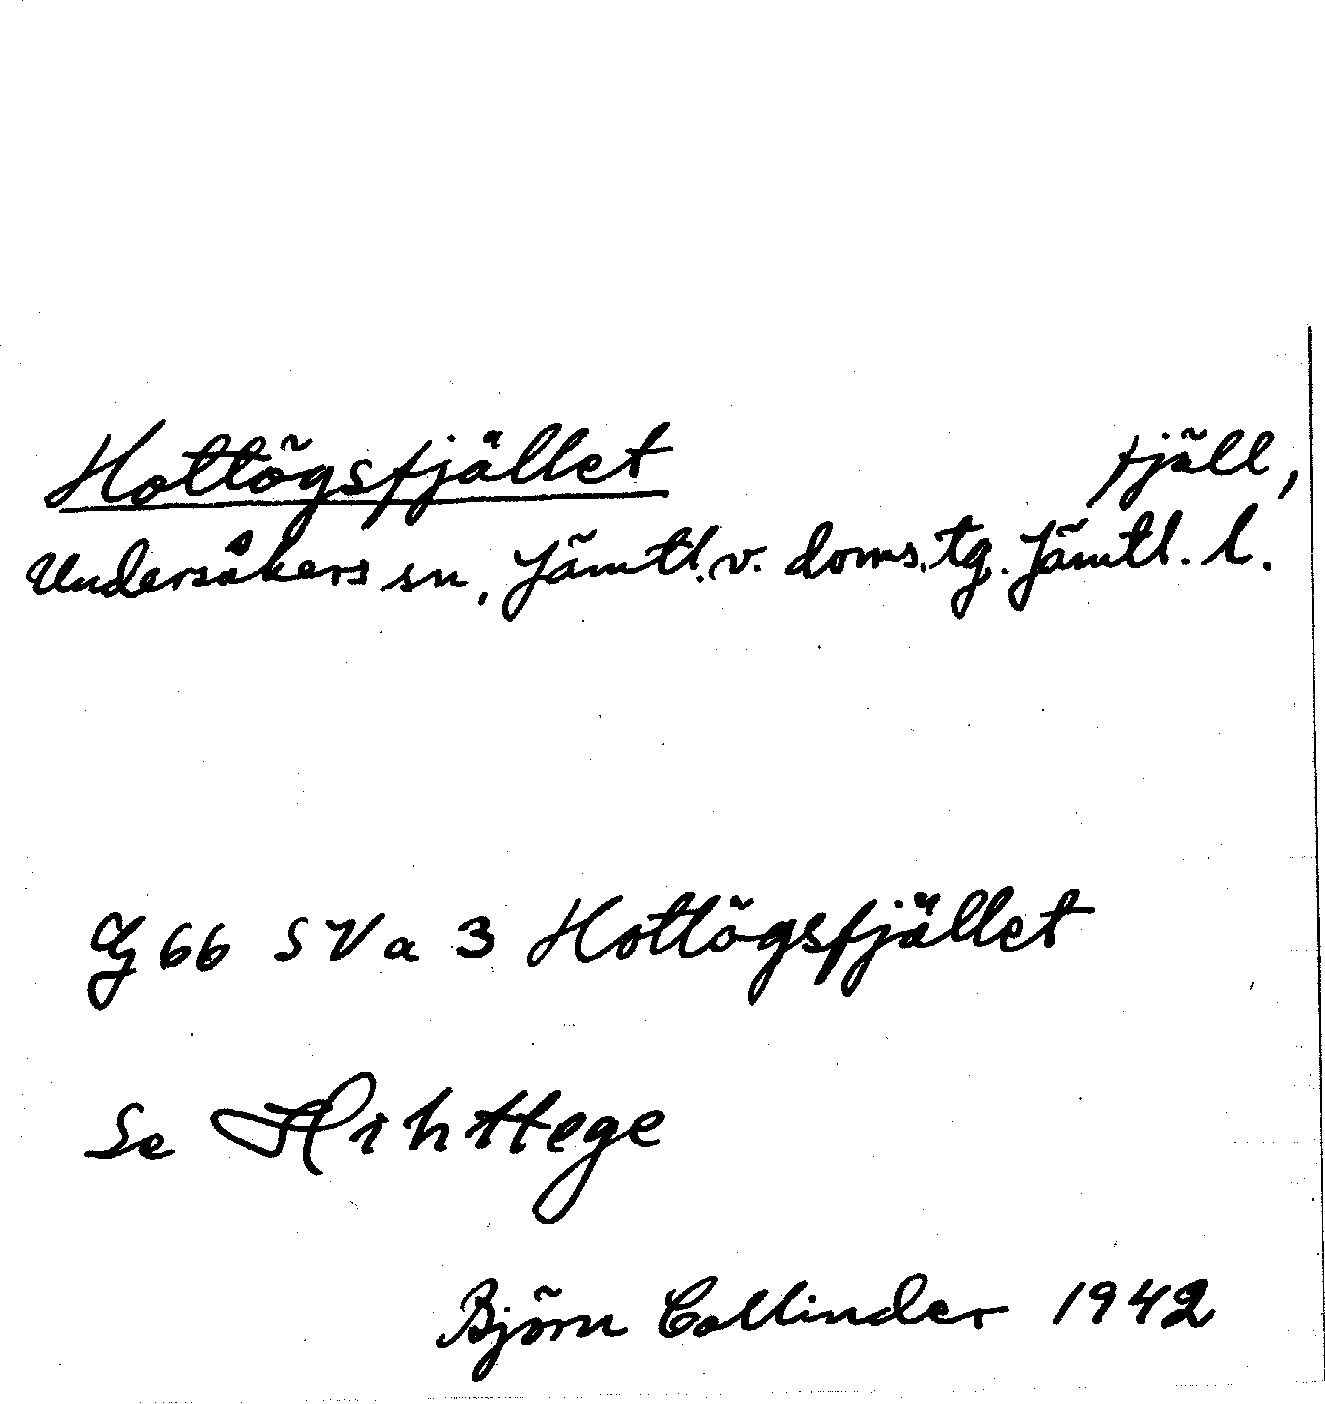 Hottögsfjället fjäll,
Undersåkers sn, Jämtl. v. doms. tg. Jämtl. l.
G 66 SV a 3 Hottögsfjället
Se Hihttege
Björn Collinder 1942